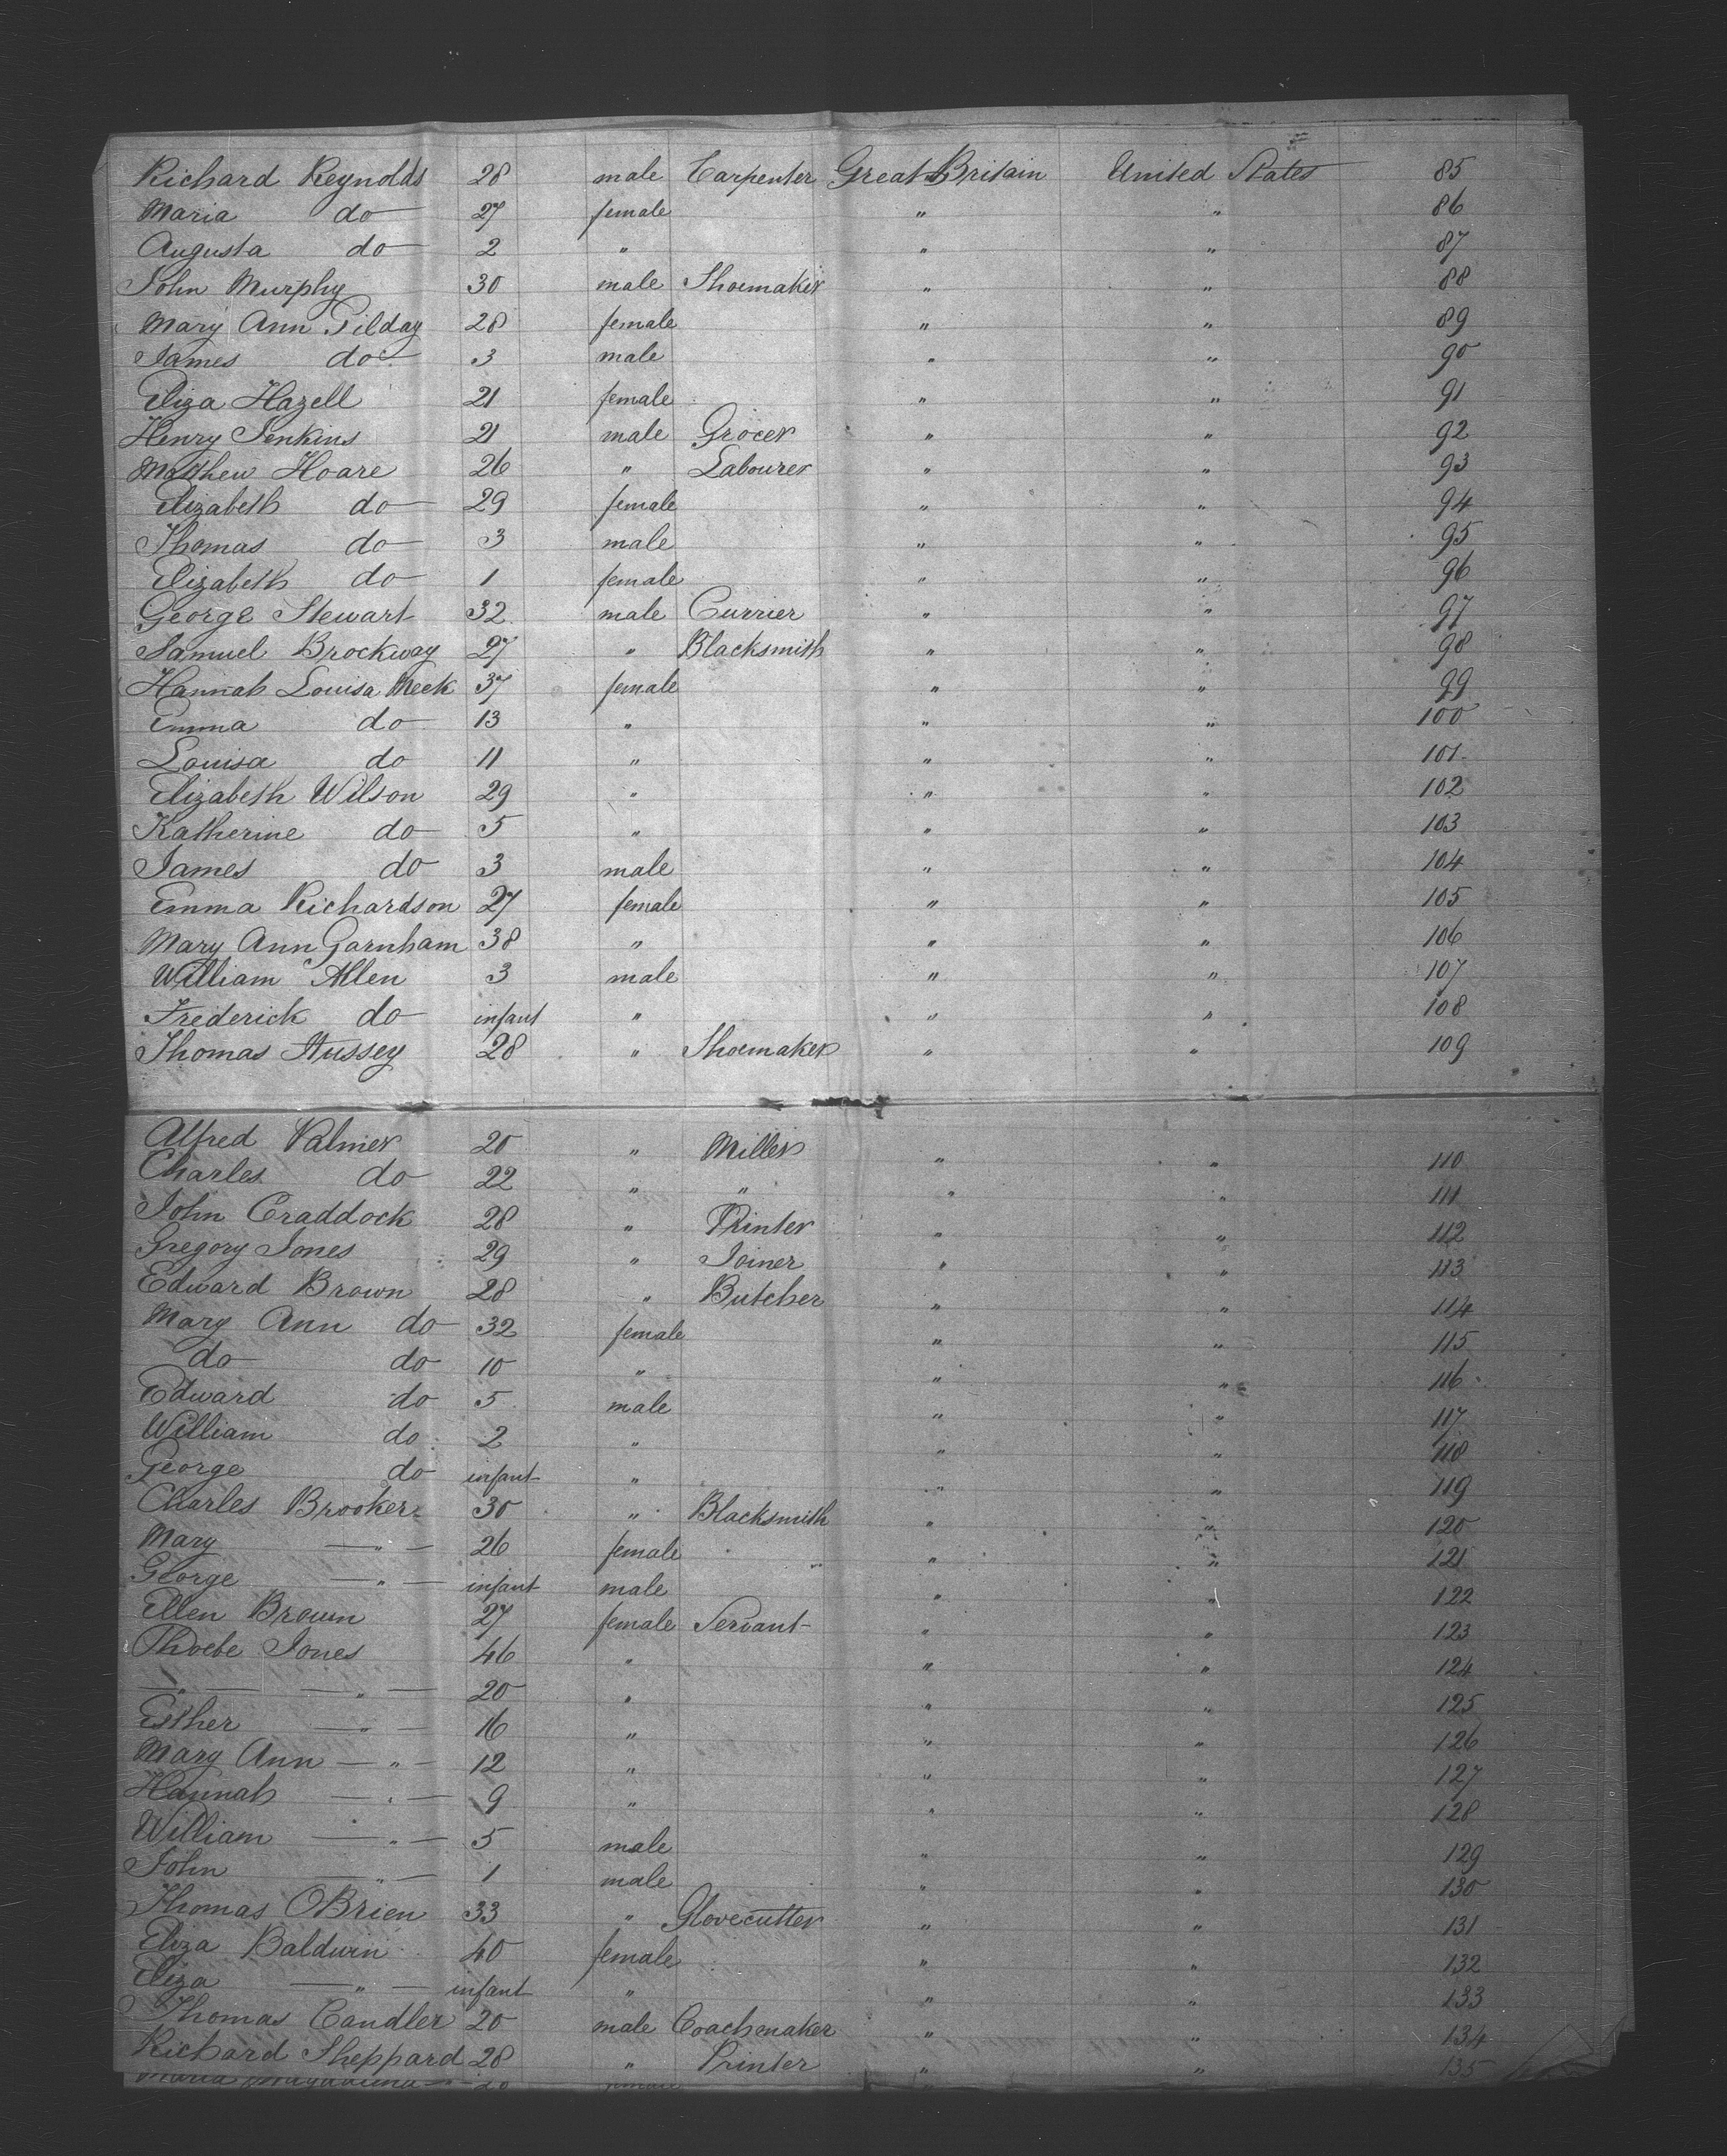 Richard Reynolds 28 male Carpenter Great Britain United States 85
Maria do 27 female " " 86
Augusta do 2 " " " 87
John Murphy 30 male Shoemaker " " 88
Mary Ann Pilday 28 female " " 89
James do 3 male " " 90
Eliza Hazell 21 female " " 91
Henry Jenkins 21 male Grocer " " 92
Matthew Hoare 26 " Labourer " " 93
Elizabeth do 29 female " " 94
Thomas do 3 male " " 95
Elizabeth do 1 female " " 96
George Stewart 32 male Currier " " 97
Samuel Brockway 27 " Blacksmith " " 98
Hannah Louisa Meek 37 female " " 99
Emma do 13 " " " 100
Louisa do 11 " " " 101
Elizabeth Wilson 29 " " " 102
Katherine do 5 " " " 103
James do 3 male " " 104
Emma Richardson 27 female " " 105
Mary Ann Garnham 38 " " " 106
William Allen 3 male " " 107
Frederick do infant " " " 108
Thomas Hussey 28 " Shoemaker " " 109
Alfred Palmer 20 " Miller " " 110
Charles do 22 " " " " 111
John Craddock 28 " Printer " " 112
Gregory Jones 29 " Joiner " " 113
Edward Brown 28 " Butcher " " 114
Mary Ann do 32 female " " 115
do do 10 " " " 116
Edward do 5 male " " 117
William do 2 " " " 118
George do infant " " " 119
Charles Brooker 30 " Blacksmith " " 120
Mary " 26 female " " " 121
George " infant male " " 122
Ellen Brown 27 female Servant " " 123
Phoebe Jones 46 " " " 124
" " 20 " " " 125
Esther " 16 " " " 126
Mary Ann " 12 " " " 127
Hannah " 9 " " " 128
William " 5 male " " 129
John " 1 male " " 130
Thomas OBrien 33 " Glovecutter " " 131
Eliza Baldwin 40 female " " 132
Eliza " infant " " " 133
Thomas Candler 20 male Coachmaker " " 134
Richard Sheppard 28 " Printer " " 135